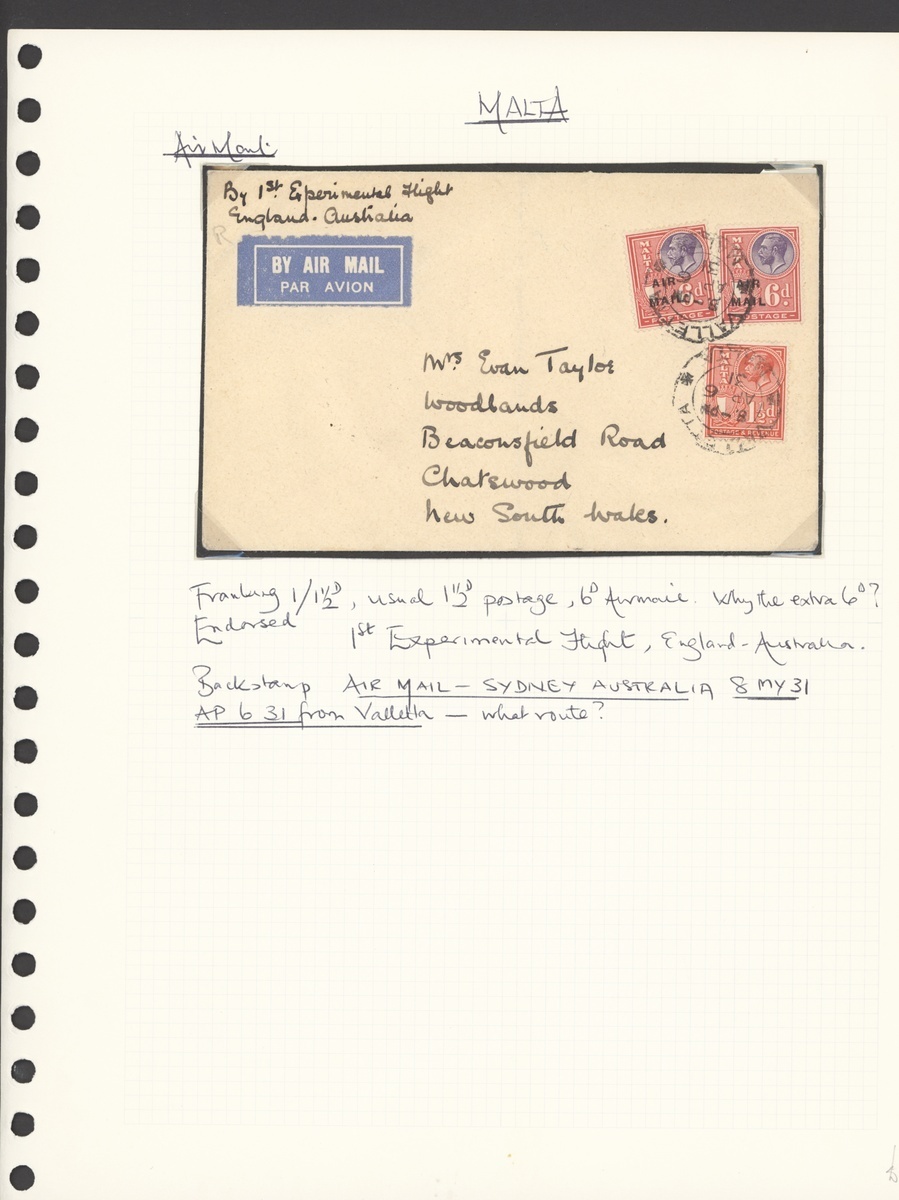 MALTA
Air Mail
By 1st Experimental Flight
England - Australia
R
BY AIR MAIL
PAR AVION
MALTA
AIR
MAIL
6d
POSTAGE
MALTA
AIR
MAIL
6d
POSTAGE
VALLETTA
Mrs Evan Taylor
Woodlands
Beaconsfield Road
Chatswood
New South Wales.
MALTA
1½d
POSTAGE & REVENUE
VALLETTA
8 - PM
6 AP
31
Franking 1/1½D, usual 1½D postage, 6D Airmail. Why the extra 6D?
Endorsed 1st Experimental Flight, England - Australia.
Backstamp AIR MAIL - SYDNEY AUSTRALIA 8 MY 31
AP 6 31 from Valletta — what route?